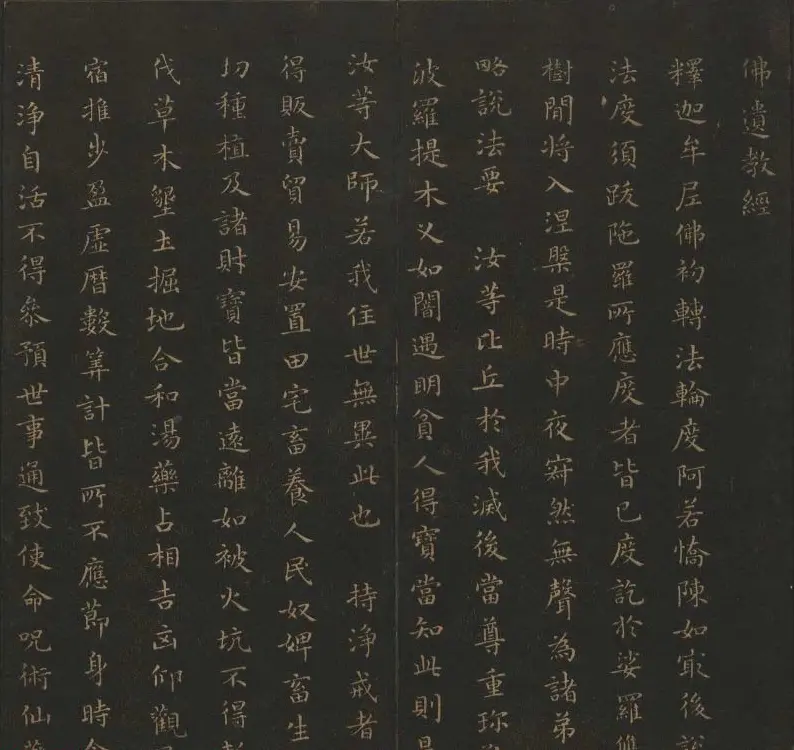 佛遺教經
釋迦牟尼佛初轉法輪度阿若憍陳如㝡後說
法度須跋陁羅所應度者皆已度訖於娑羅雙
樹閒將入涅槃是時中夜寂然無聲為諸弟
略說法要 汝等比丘於我滅後當尊重珎
波羅提木叉如闇遇明貧人得寶當知此則是
汝等大師若我住世無異此也 持淨戒者
得販賣貿易安置田宅畜養人民奴婢畜生
切種植及諸財寶皆當遠離如被火坑不得
伐草木墾土掘地合和湯藥占相吉凶仰觀
宿推步盈虛曆數筭計皆所不應節身時食
清淨自活不得叅預世事通致使命呪術仙